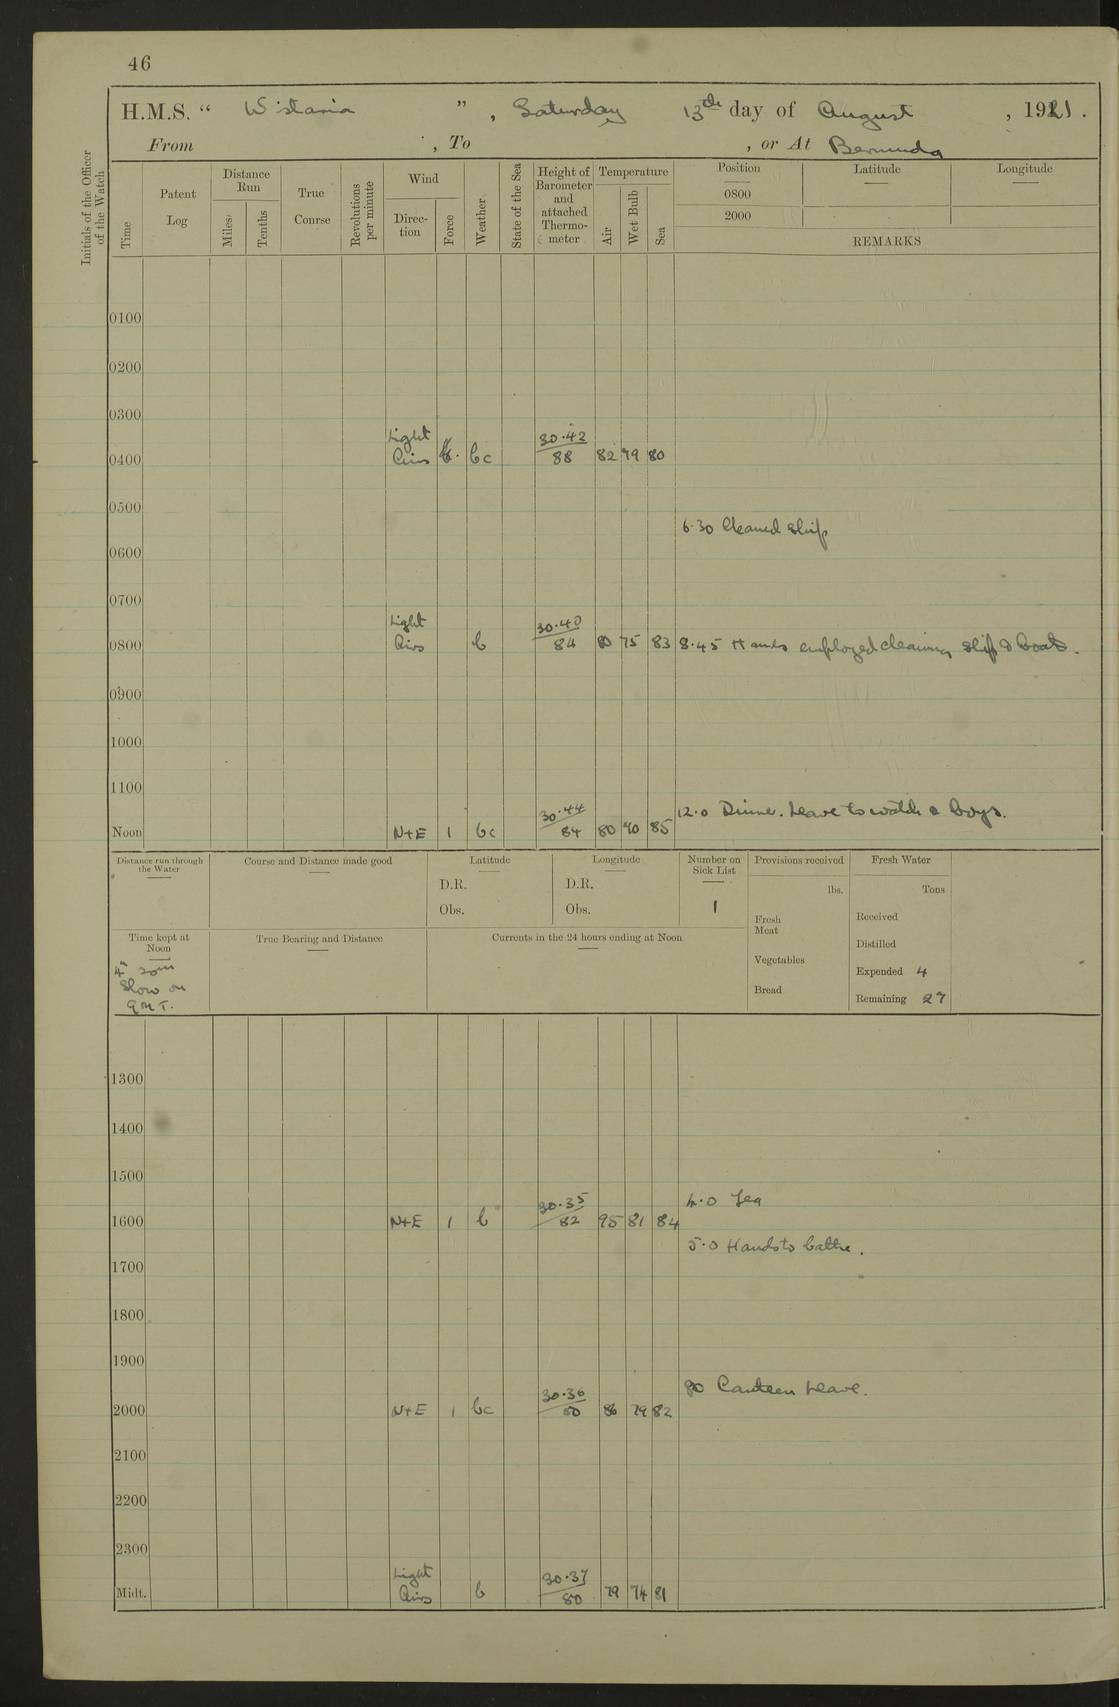 46
H.M.S. " Wistaria ", Saturday 13th day of August, 1921.
From , To , or At Bermuda
Initials of the Officer of the Watch
Time
Patent Log
Distance Run
Miles
Tenths
True Course
Revolutions per minute
Wind
Direction
Force
Weather
State of the Sea
Height of Barometer and attached Thermometer
Temperature
Air
Wet Bulb
Sea
Position
Latitude
Longitude
0800
2000
REMARKS
0100
0200
0300
0400 Light Airs bc 30.42 88 82 79 80
0500
6.30 Cleaned Ship
0600
0700
0800 Light Airs b 30.40 84 80 75 83 8.45 Hands employed cleaning ship & boats.
0900
1000
1100
12.0 Dinner. Leave to watch & boys.
Noon N+E 1 bc 30.44 84 80 70 85
Distance run through the Water
Course and Distance made good
Latitude
D.R.
Obs.
Longitude
D.R.
Obs.
Number on Sick List
1
Provisions received
lbs.
Fresh Meat
Vegetables
Bread
Fresh Water
Tons
Received
Distilled
Expended 4
Remaining 27
Time kept at Noon
4h 20m
Slow on
G.M.T.
True Bearing and Distance
Currents in the 24 hours ending at Noon
1300
1400
1500
4.0 Tea
1600 N+E 1 b 30.35 82 95 81 84
5.0 Hands to bathe.
1700
1800
1900
80 Canteen Leave.
2000 N+E 1 bc 30.36 80 86 79 82
2100
2200
2300
Midt. Light Airs b 30.37 80 79 74 81